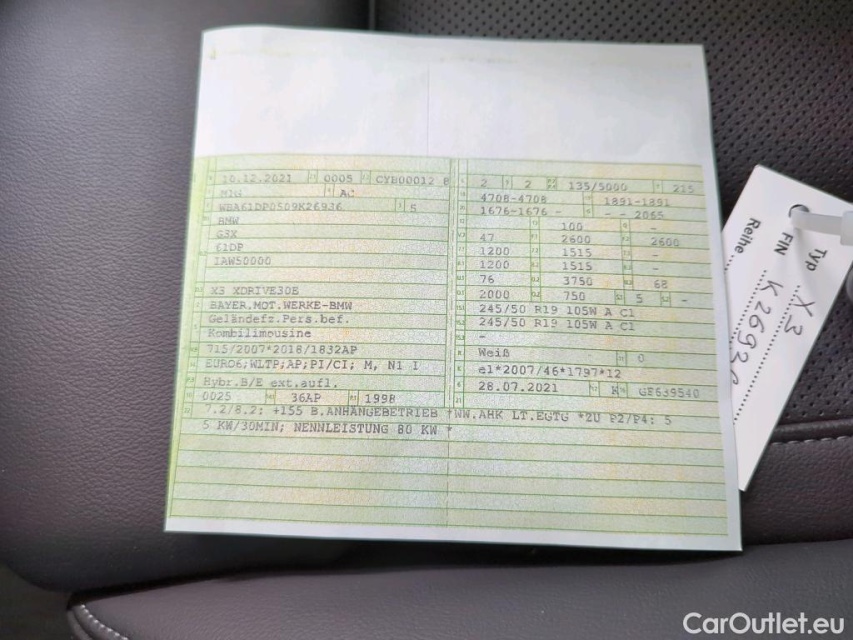 10.12.2021 0005 CYB00012 8
M1G AC
WBA61DP0509K26936 5
BMW
G3X
61DP
IAW50000
X3 XDRIVE30E
BAYER.MOT.WERKE-BMW
Geländefz.Pers.bef.
Kombilimousine
715/2007*2018/1832AP
EURO6;WLTP;AP;PI/CI; M, N1 I
Hybr.B/E ext.aufl.
0025 36AP 1998
2 2 135/5000 215
4708-4708 1891-1891
1676-1676 - - - 2065
100 -
47 2600 2600
1200 1515 -
1200 1515 -
76 3750 68
2000 750 5 -
245/50 R19 105W A C1
245/50 R19 105W A C1
-
Weiß 0
e1*2007/46*1797*12
28.07.2021 K GE639540
7.2/8.2: +155 B.ANHÄNGEBETRIEB *WW.AHK LT.EGTG *ZU P2/P4: 5
5 KW/30MIN; NENNLEISTUNG 80 KW *
Typ X3
FIN K 2692
Reihe
CarOutlet.eu